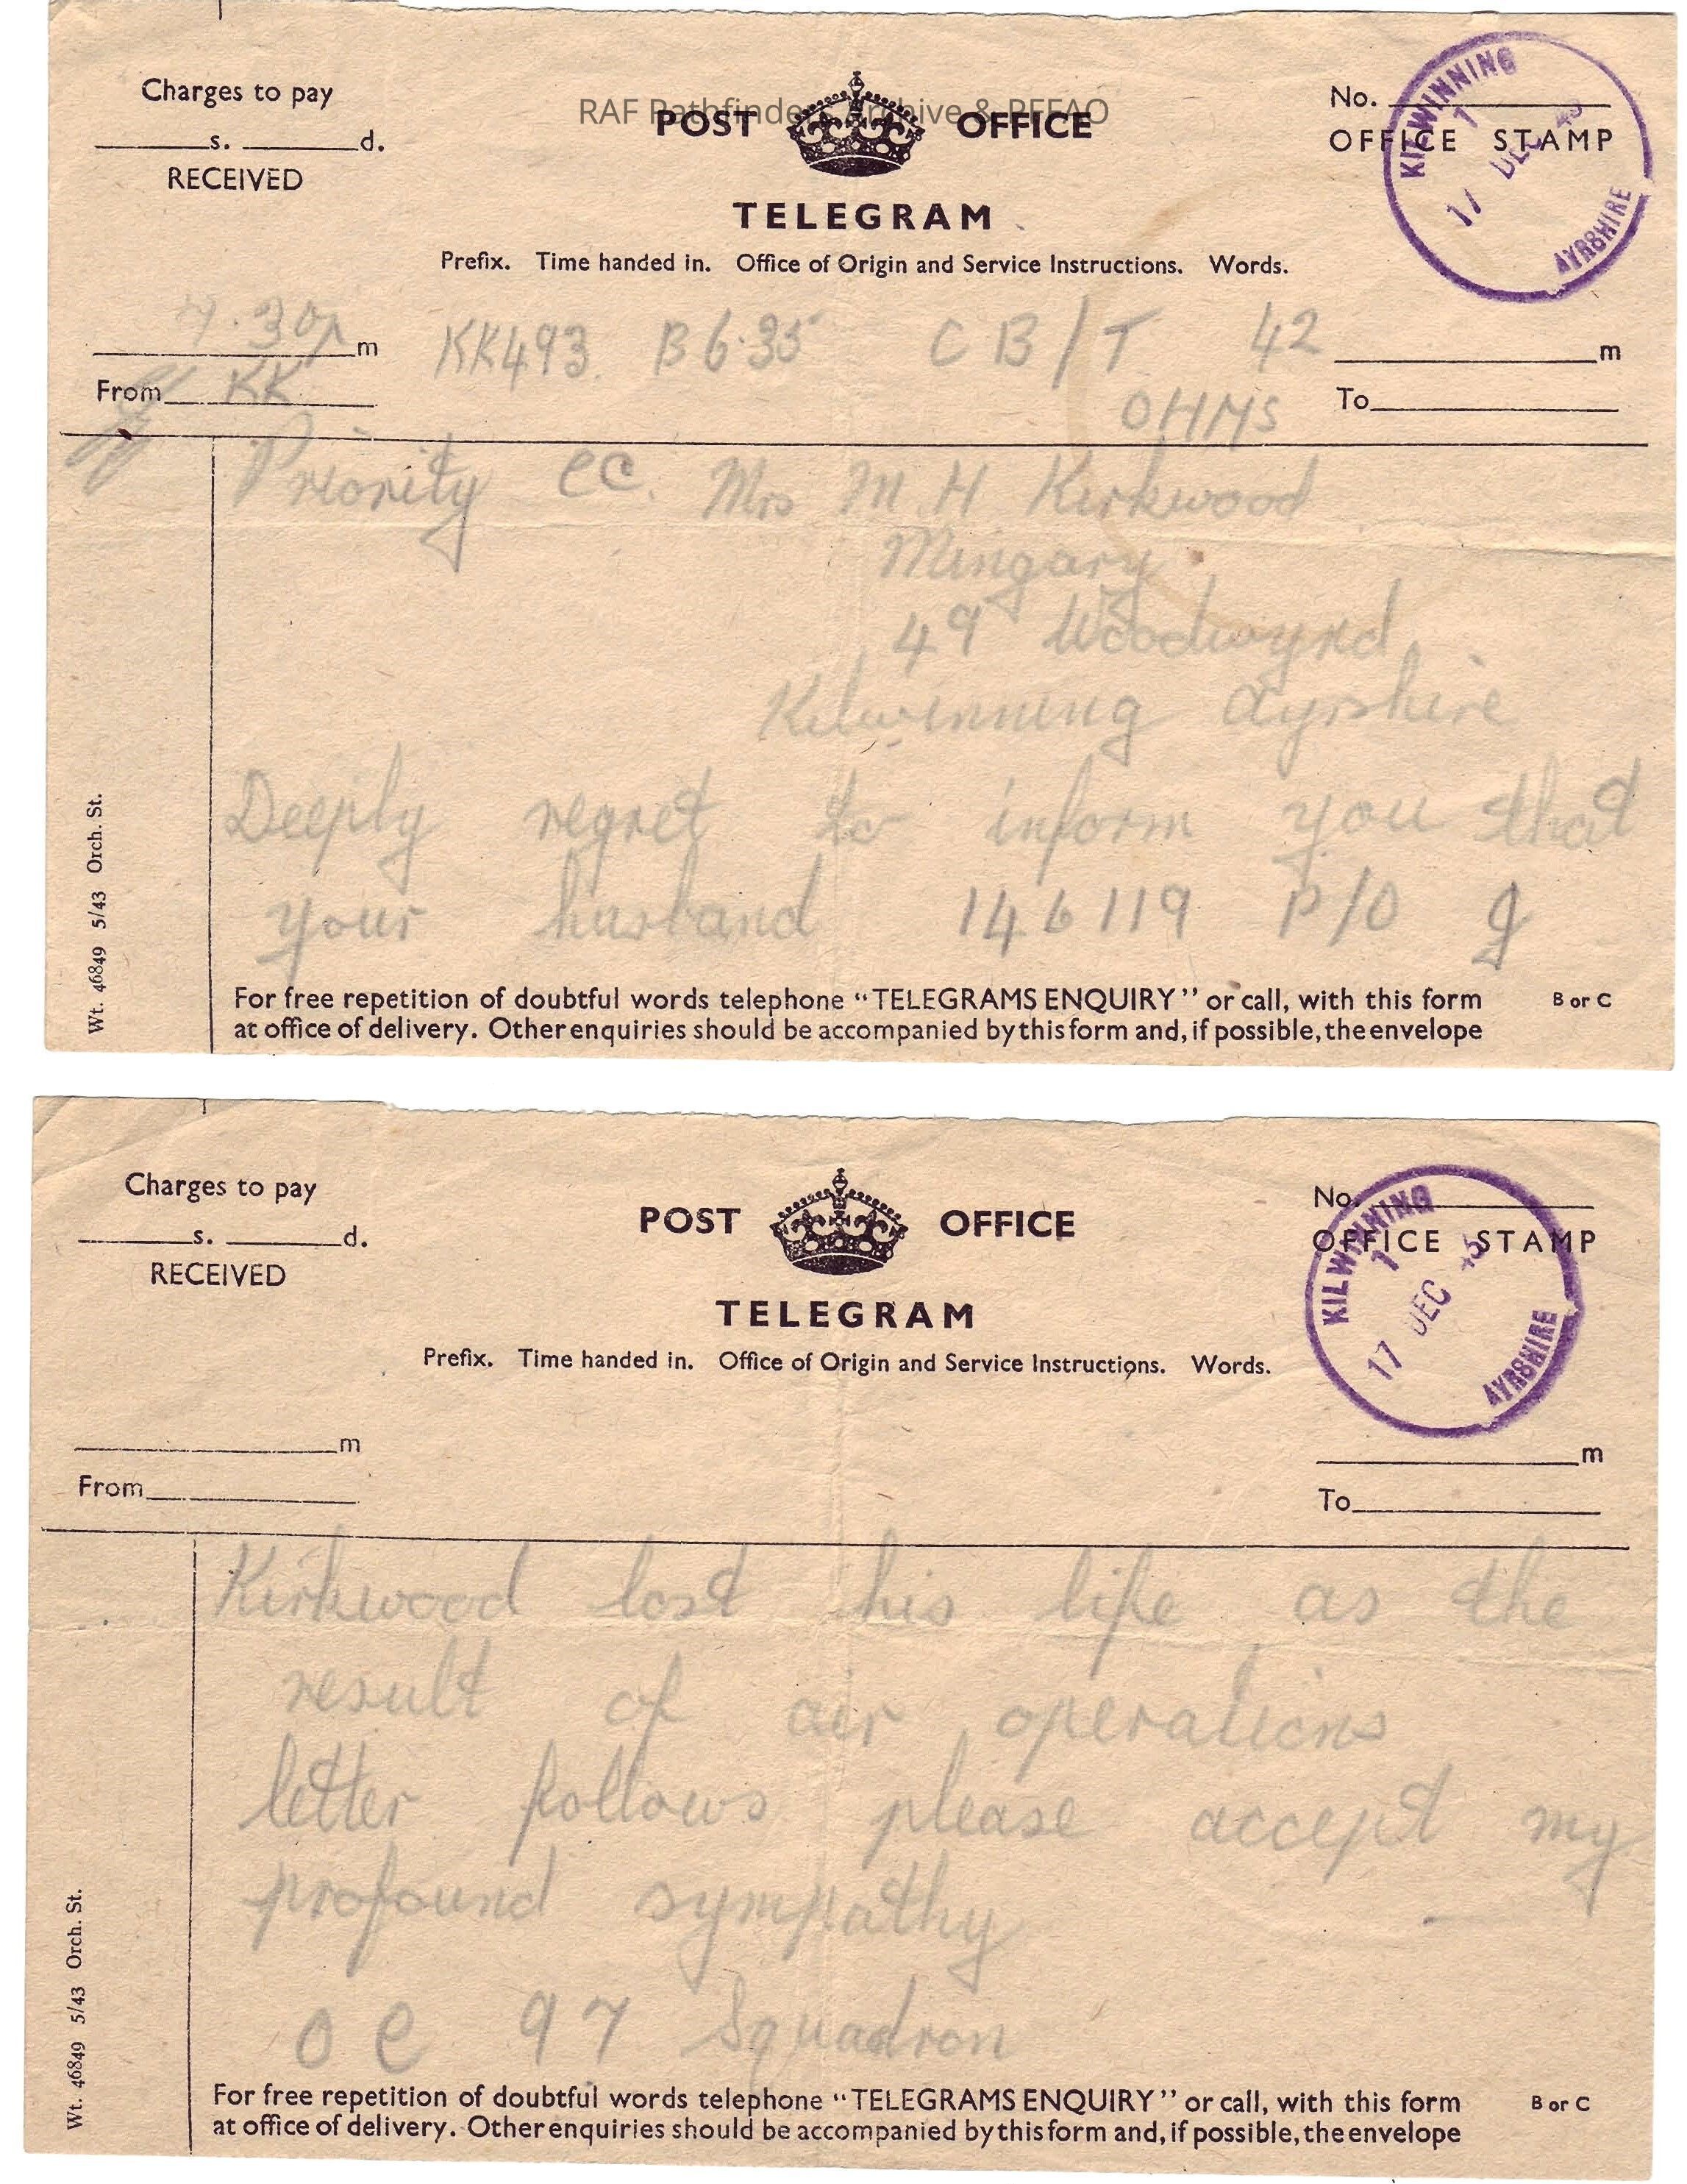 RAF Pathfinders Archive & PFFAO
Charges to pay
s. d.
RECEIVED
POST OFFICE
TELEGRAM
Prefix. Time handed in. Office of Origin and Service Instructions. Words.
No.
OFFICE STAMP
KILWINNING
1
17 DEC 43
AYRSHIRE
7.30p m
From KK
KK493 B 6.35 C B/T 42
OHMS
m
To
Priority CC. Mrs M. H Kirkwood
Mingary
49 Woodwynd
Kilwinning Ayrshire
Deeply regret to inform you that
your husband 146119 P/O J
Wt. 46849 5/43 Orch. St.
For free repetition of doubtful words telephone “TELEGRAMS ENQUIRY” or call, with this form
at office of delivery. Other enquiries should be accompanied by this form and, if possible, the envelope
B or C
Charges to pay
s. d.
RECEIVED
POST OFFICE
TELEGRAM
Prefix. Time handed in. Office of Origin and Service Instructions. Words.
No.
OFFICE STAMP
KILWINNING
1
17 DEC 43
AYRSHIRE
m
From
m
To
Kirkwood lost his life as the
result of air operations
letter follows please accept my
profound sympathy
O C 97 Squadron
Wt. 46849 5/43 Orch. St.
For free repetition of doubtful words telephone “TELEGRAMS ENQUIRY” or call, with this form
at office of delivery. Other enquiries should be accompanied by this form and, if possible, the envelope
B or C